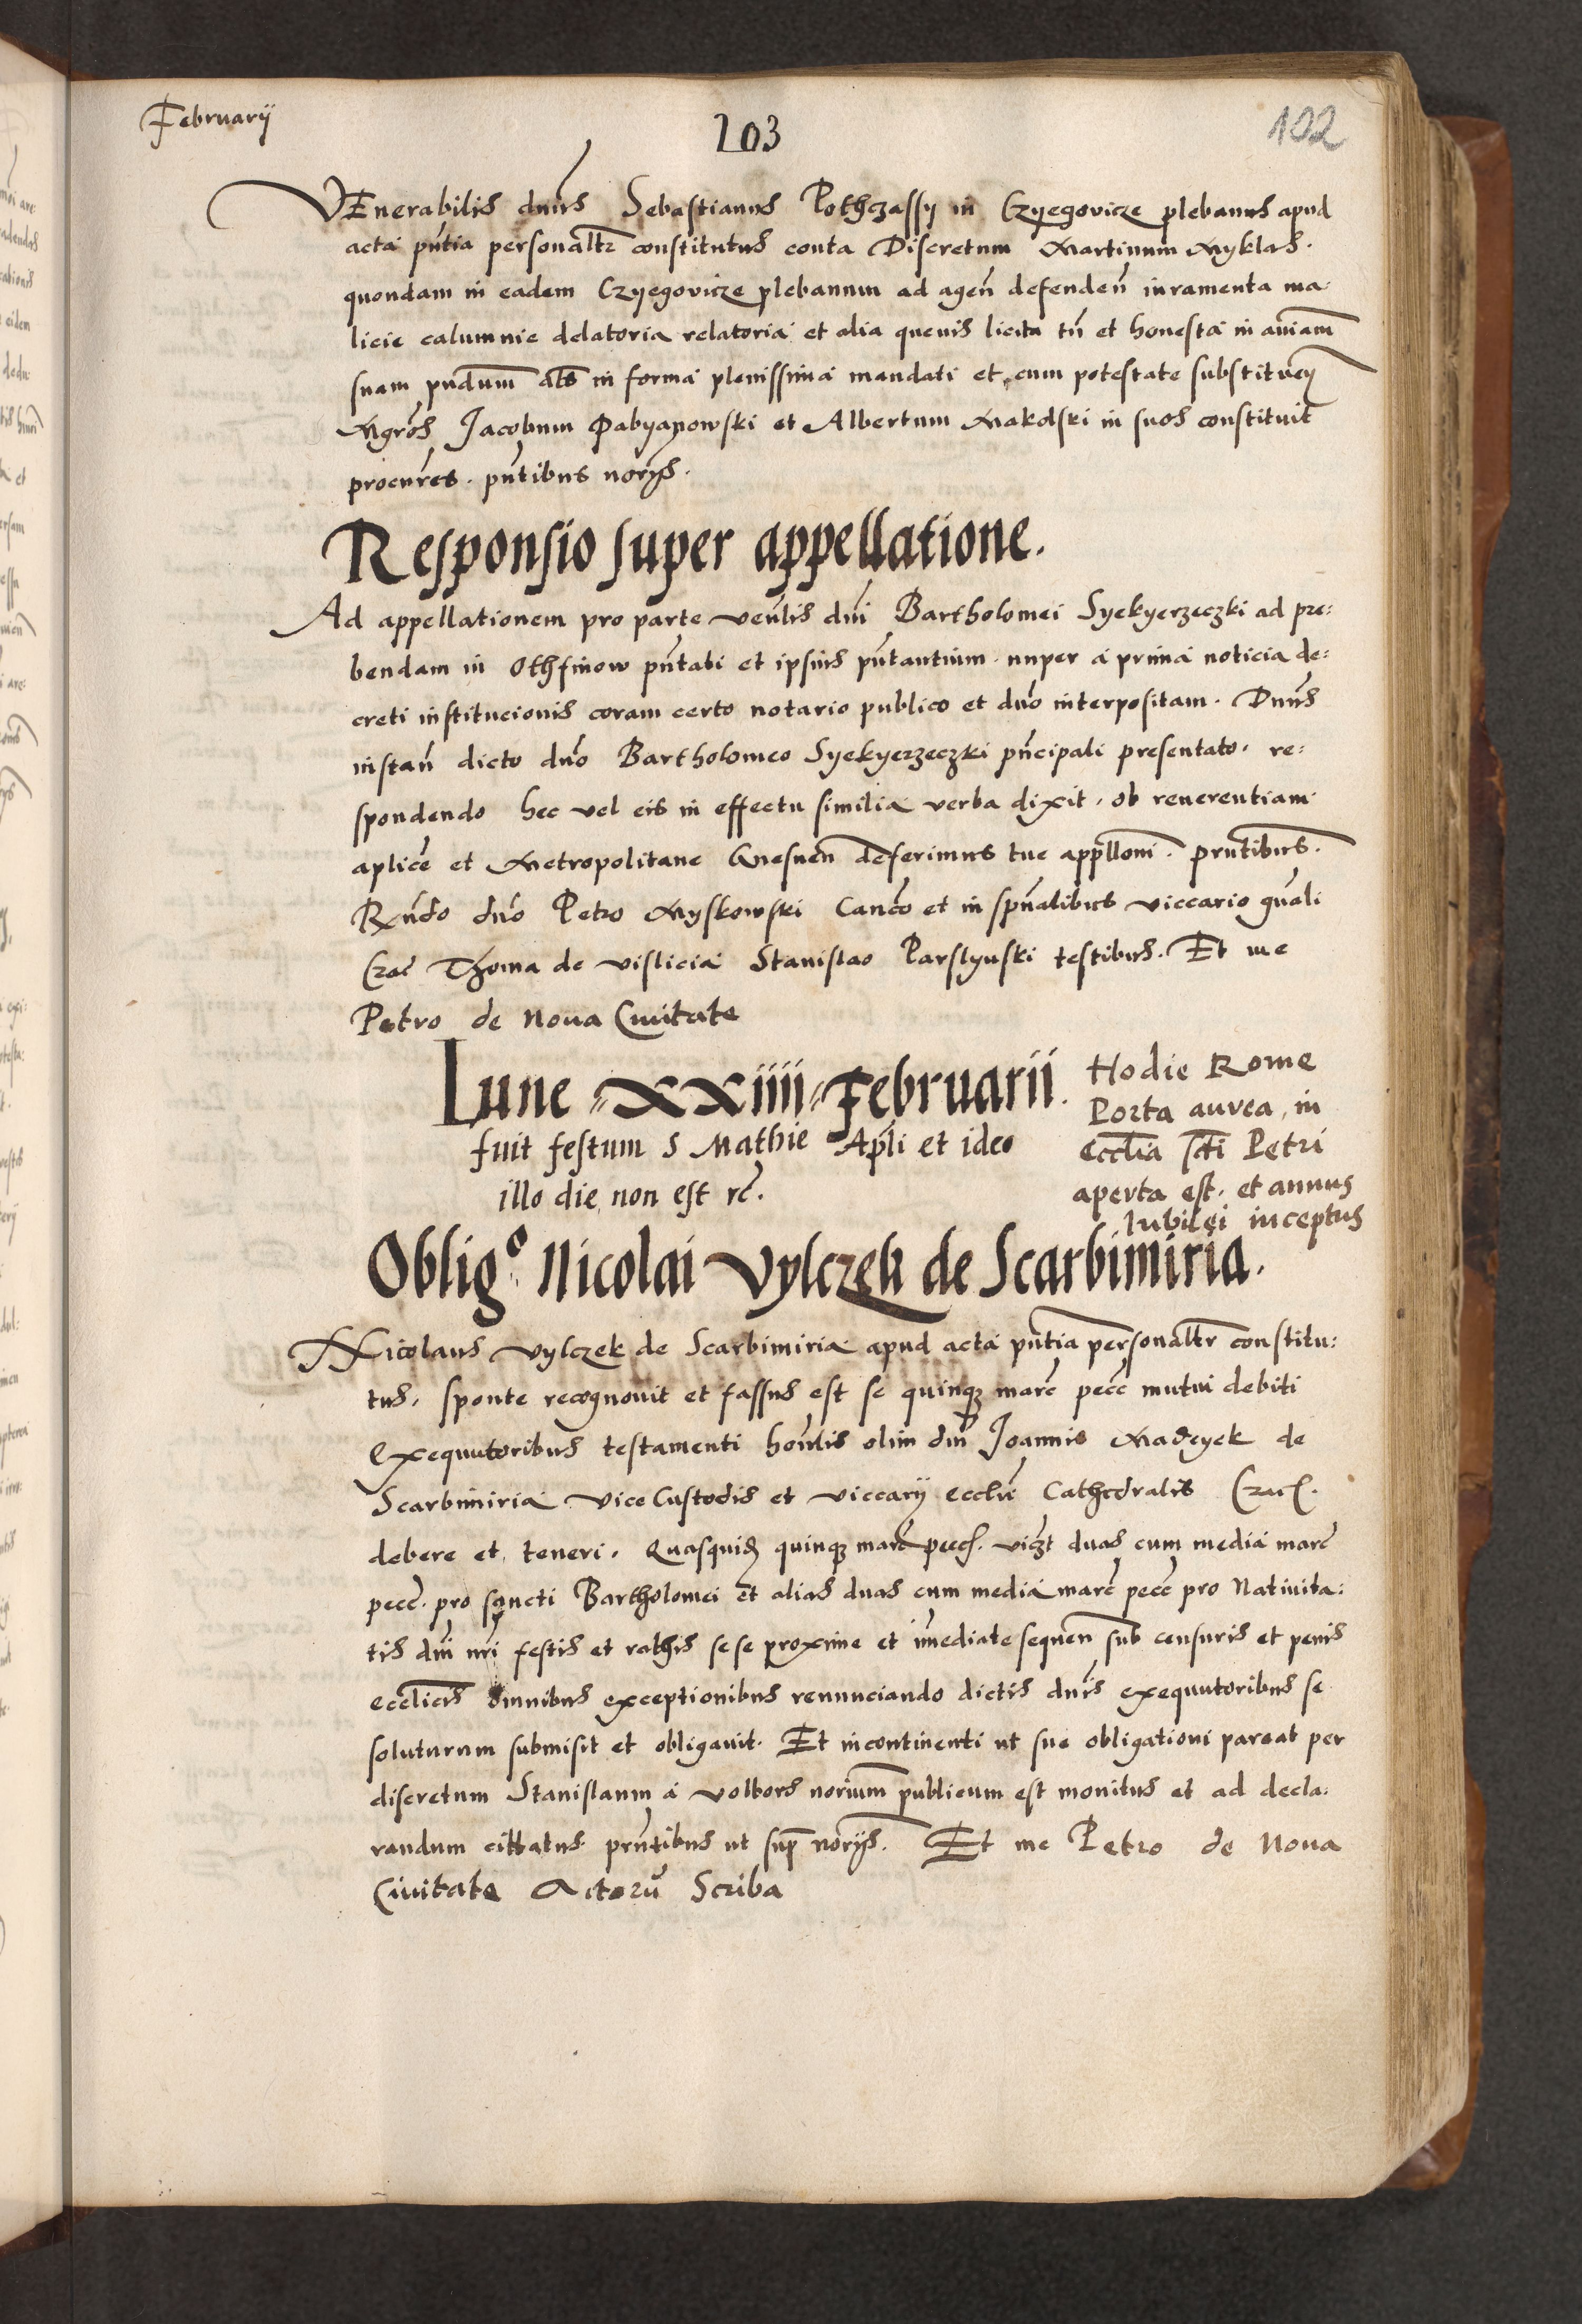 Februarij
103
102
VEnerabilis dnus Sebastianus Pothczassy in Czyegovicze plebanus apud
acta pntia personaltr constitutus conta Discretum Martinum Myklas.
quondam in eadem Czyegovicze plebanum ad agen defenden iuramenta ma:
licie calumnie delatoria relatoria et alia quevis licita tn et honesta in aniam
suam pndum als in forma plenissima mandati et cum potestate substituen
Mgros Jacobum Pabyanowski et Albertum Makolski in suos constituit
procures. pntibus norijs.
Responsio super appellatione.
Ad appellationem pro parte venlis dni Bartholomei Syekyerzeczki ad pre:
bendam in Othfinow pntati et ipsius pntantium nuper a prima noticia de:
creti institucionis coram certo notario publico et dno interpositam. Dnus
instan dicto dno Bartholomeo Syekyerzeczki pncipali presentato. re:
spondendo hec vel eis in effectu similia verba dixit. ob reverentiam
aplice et Metropolitane Gnesnen deferimus tue applloni. pntibus.
Rndo dno Petro Myskowski Canco et in spualibus viccario gnali
Crac Thoma de vislicia Stanislao Parslynski testibus. Et me
Petro de Nova Civitate
Lune XXiiii Februarii.
fuit festum S Mathie Apli et ideo
illo die, non est rc.
Hodie Rome
Porta aurea, in
Ecclia scti Petri
aperta est. et annus
Iubilei inceptus
Oblig° Nicolai Vylczek de Scarbimiria.
Nicolaus Vylczek de Scarbimiria apud acta pntia personaltr constitu:
tus, sponte recognovit et fassus est se quinqz marc pecc mutui debiti
Exequutoribus testamenti honlis olim dni Joannis Maczyek de
Scarbimiria vice Custodis et viccarij ecclie Cathedralis Crac.
debere et teneri. Quasquid quinqz marc pecc. viczt duas cum media marc
pecc. pro sancti Bartholomei et alias duas cum media marc pecc pro Nativita:
tis dni nri festis et rathis sese proxime et imediate sequen sub censuris et penis
ecclicis omnibus exceptionibus renunciando dictis dnis exequutoribus se
soluturum submisit et obligavit. Et incontinenti ut sue obligationi pareat per
discretum Stanislaum a volbors norium publicum est monitus et ad decla:
randum cittatus pntibus ut sup norijs. Et me Petro de Nova
Civitate Actoru Scriba